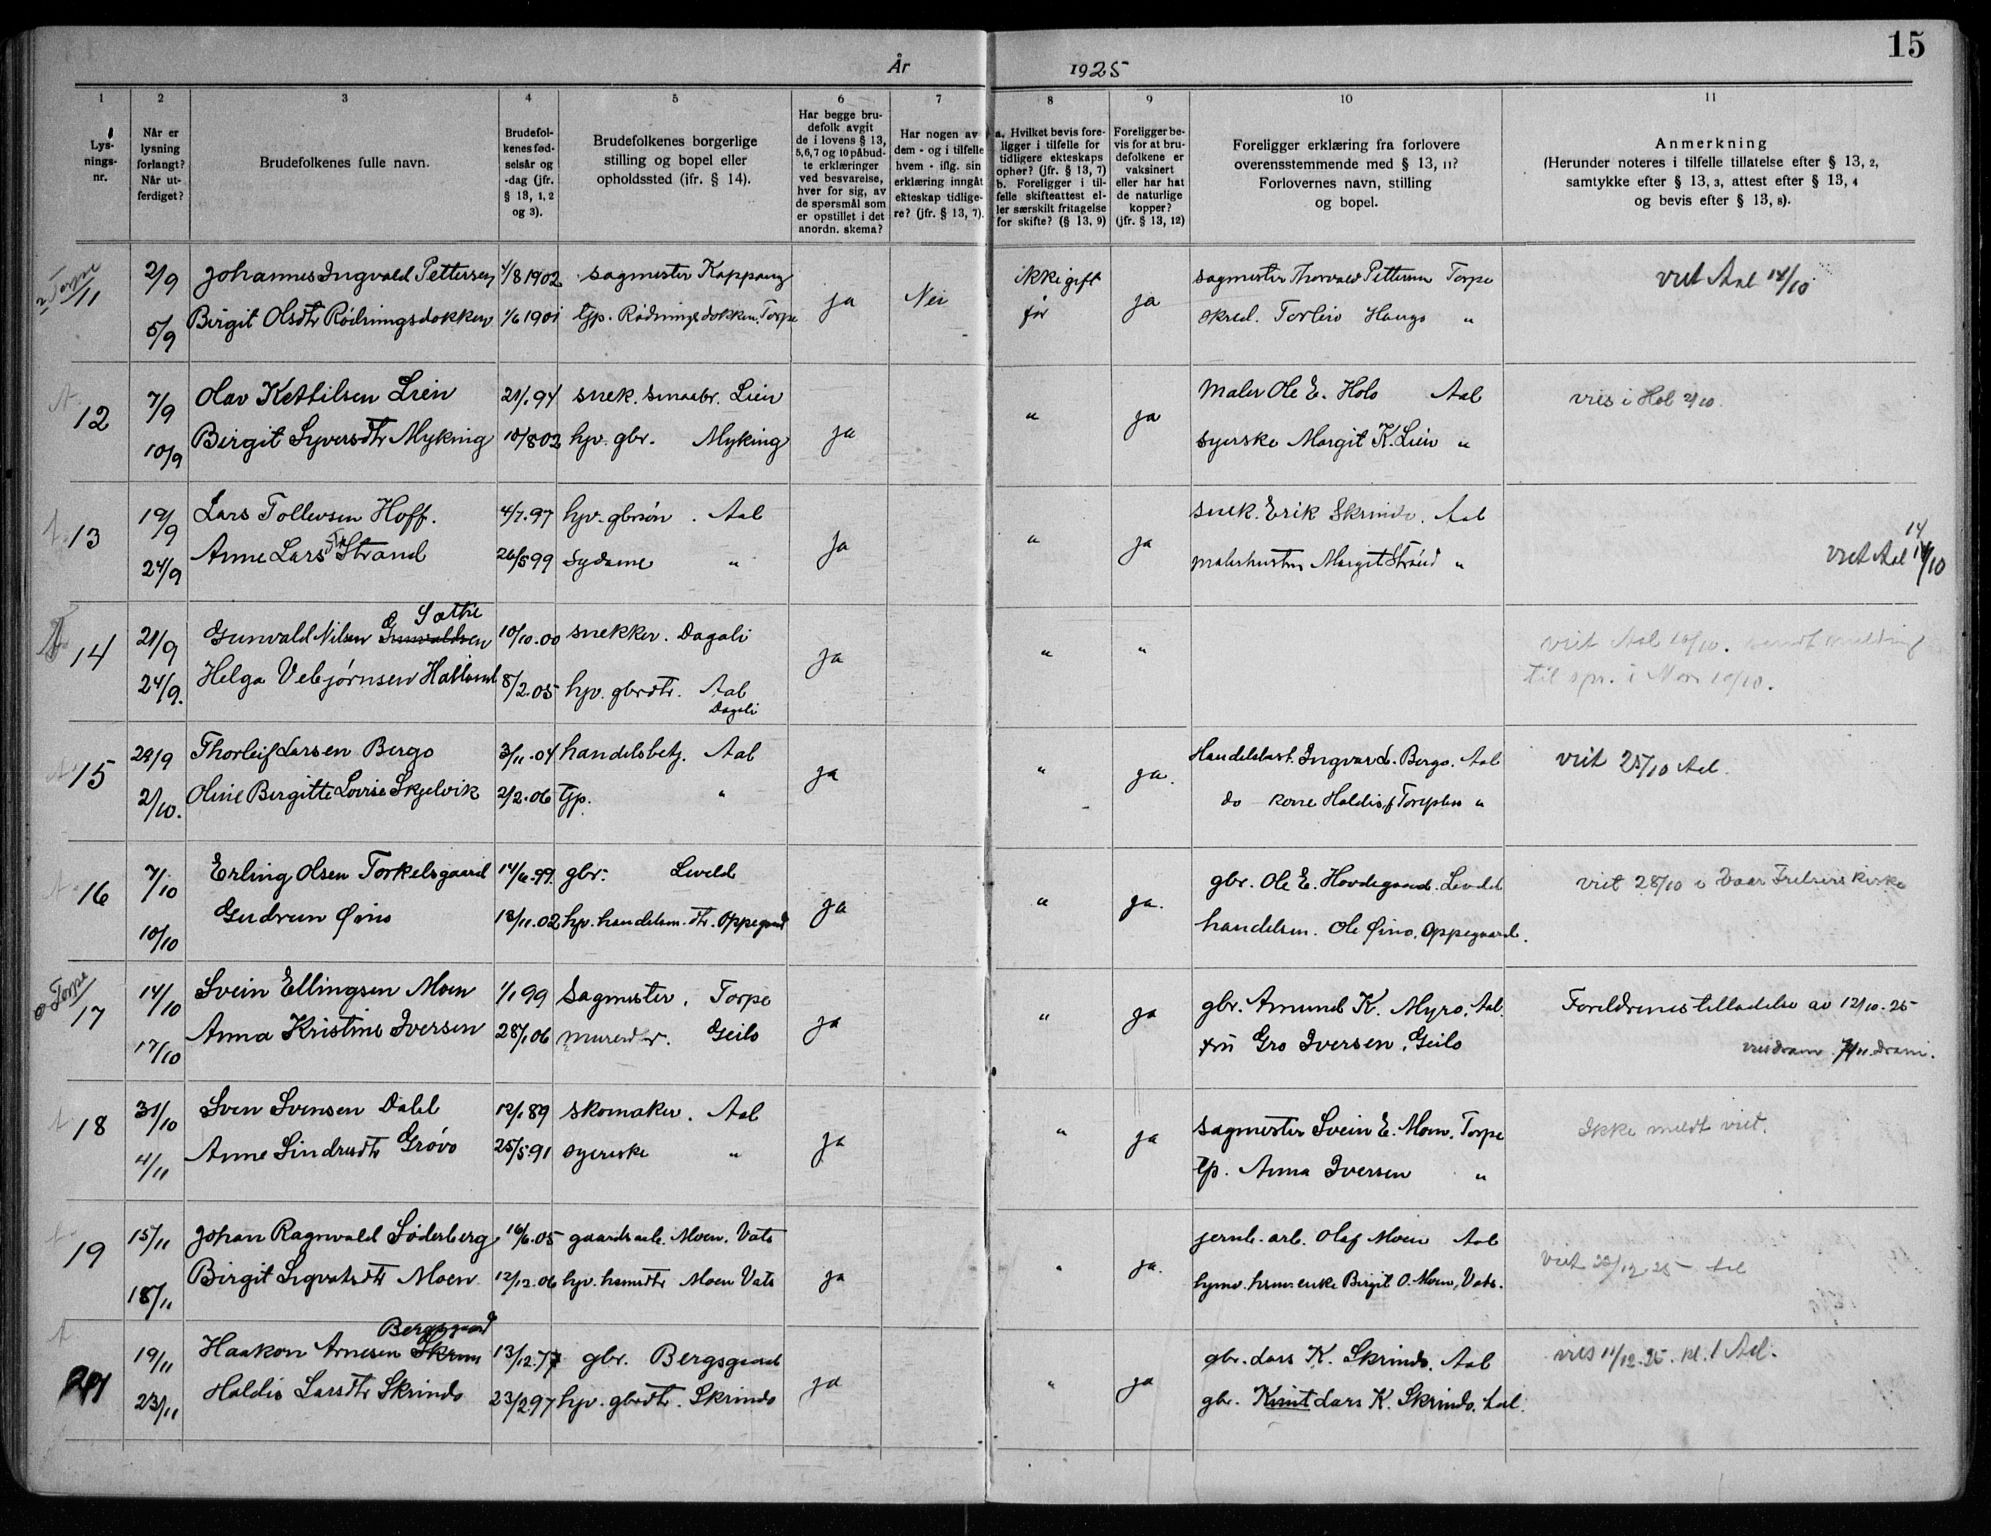 15
År 1925
1 2 3 4 5 6 7 8 9 10 11
Lys-
nings-
nr.
Når er
lysning
forlangt?
Når ut-
ferdiget?
Brudefolkenes fulle navn.
Brudefol-
kenes fød-
selsår og
-dag (jfr.
§ 13, 1, 2
og 3).
Brudefolkenes borgerlige
stilling og bopel eller
opholdssted (jfr. § 14).
Har begge bru-
defolk avgit
de i lovens § 13,
5, 6, 7 og 10 påbud-
te erklæringer
ved besvarelse,
hver for sig, av
de spørsmål som
er opstillet i det
anordn. skema?
Har nogen av
dem - og i tilfelle
hvem - iflg. sin
erklæring inngåt
ekteskap tidlige-
re? (jfr. § 13, 7).
a. Hvilket bevis fore-
ligger i tilfelle for
tidligere ekteskaps
ophør? (jfr. § 13, 7)
b. Foreligger i til-
felle skifteattest el-
ler særskilt fritagelse
for skifte? (§ 13, 9)
Foreligger be-
vis for at bru-
defolkene er
vaksinert
eller har hat
de naturlige
kopper?
(jfr. § 13, 12)
Foreligger erklæring fra forlovere
overensstemmende med § 13, 11?
Forlovernes navn, stilling
og bopel.
Anmerkning
(Herunder noteres i tilfelle tillatelse efter § 13, 2,
samtykke efter § 13, 3, attest efter § 13, 4
og bevis efter § 13, 8).
Torpe
11 2/9 Johannes Ingvald Pettersen 4/8 1902 sagmester Kappang ja Nei ikke gift ja sagmester Thorvald Pettersen Torpe viet Aal 14/10
5/9 Birgit Olsdtr Rødningsdokken 1/6 1901 tjp. Rødningsdokken. Torpe før skred. Torleiv Haugo "
12 7/9 Olav Kettilsen Lien 21/1.94 snek. smaabr. Lien ja " ja Maler Ole E. Holo Aal vies i Hol 2/10.
10/9 Birgit Syversdtr Myking 10/8 02 hjv. gbr. Myking syerske Margit K. Lien "
13 19/9 Lars Tollevsen Hoff. 4/7.97 hjv. gbrsøn. Aal ja " ja snek. Erik Skrindo. Aal
24/9 Anne Larsdtr Strand 26/5 99 sydame " malerhustru Margit Strand " viet Aal 14/10
Sætre
14 21/9 Gunvald Nilsen G Gunvaldsen 10/10.00 snekker. Dagali ja " " viet Aal 10/10. sendt melding
24/9. Helga Vebjørnsen Halland 8/2.05 hjv. gbrdtr. Aal til spr. i Nore 10/10.
Dagali
15 29/9 Thorleif Larsen Bergo 3/11.04 handelsbetj. Aal ja " ja. Handelsbest. Ingvar L. Bergo. Aal viet 25/10 Aal.
2/10. Oline Birgitte Lovise Skjelvik 2/2.06 tjp. " do kone Haldis Torsteins "
16 7/10 Erling Olsen Torkelsgaard 14/6.99. gbr. Leveld ja " ja. gbr. Ole E. Hovdegaard. Leveld viet 28/10 i Vaar Frelsers kirke
10/10 Gudrun Øino 18/11.02 hjv. handelsm. dtr. Oppegaard handelsm. Ole Øino, Oppegaard.
Torpe
17 14/10 Svein Ellingsen Moen 1/1 99 Sagmester. Torpe ja " ja gbr. Amund K. Myro. Aal. Foreldrenes tilladelse av 12/10-25
17/10 Anna Kristine Iversen 28/1 06 murerdtr. Geilo fru Gro Iversen, Geilo
18 31/10 Sven Svensen Dahl 12/1 89 skomaker. Aal ja " ja Sagmester Svein E. Moen, Torpe Ikke meldt viet.
4/11 Anne Sindresdtr Grøvo 25/5.91 syerske " tjp. Anna Iversen "
19 15/11 Johan Ragnvald Söderberg 16/6.05 gaardsarb. Moen. Vats ja " ja. jernb. arb. Olaf Moen Aal viet 22/12 25 Aal
18/11 Birgit Sigvatsdtr Moen 12/12.06 hjv. hsmdtr Moen Vats hjmv. hsm. enke Birgit O. Moen, Vats.
Bergsgaard
19/11 Haakon Arnesen Skrin 13/12.77 gbr. Bergsgaard ja " ja gbr. Lars K. Skrindo, Aal vies 11/12.25. kl. 1 Aal.
23/11 Haldis Larsdtr Skrindo 23/2 97 hjv. gbrdtr. Skrindo gbr. Knut Lars K. Skrindo. Aal.